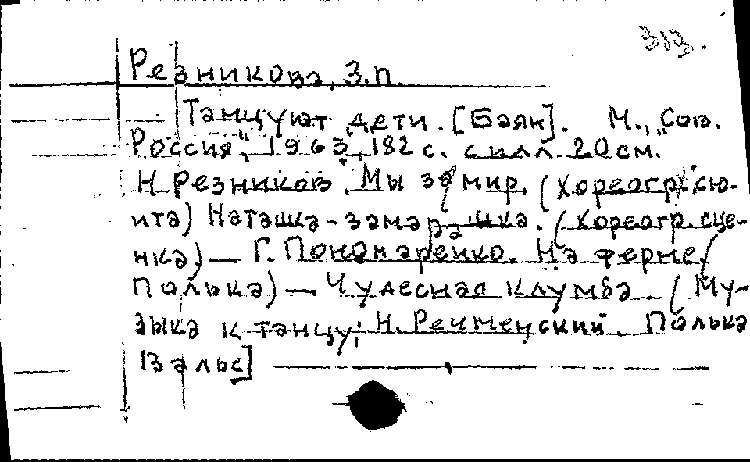 313.
Резникова, З.П.
Танцуют дети. [Баян]. М., „Сов.
Россия", 1963, 182 с. с илл. 20 см.
Н. Резников. Мы за мир. (Хореогр. сю-
ита) Наташка-замарашка. (Хореогр. сце-
нка) — Г. Пономаренко. На ферме (
Полька) — Чудесная клумба. (Му-
зыка к танцу; Н. Речменский. Полька
Вальс]